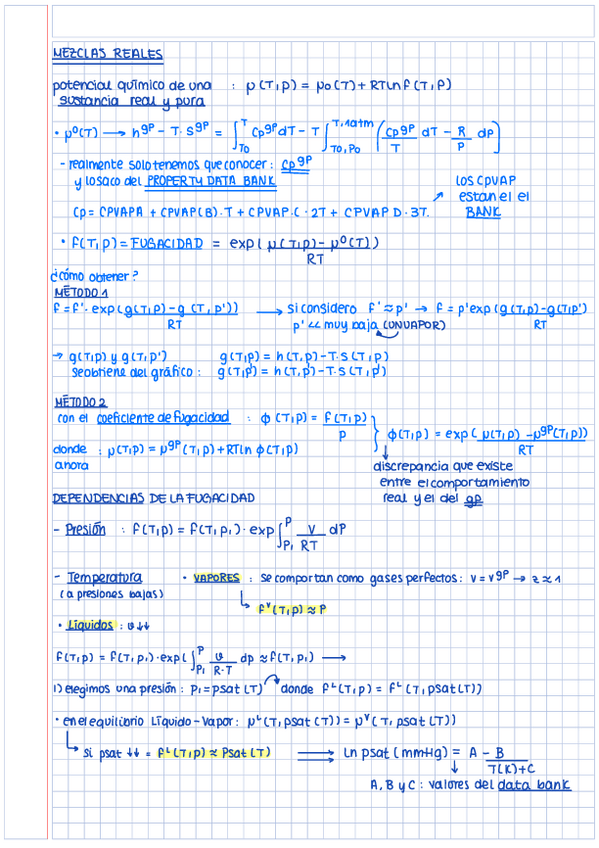 MEZCLAS REALES
potencial químico de una : μ(T,p) = μ₀(T) + RTlnf(T,P)
sustancia real y pura
• μ⁰(T) → h^gp − T·s^gp = ∫_T₀^T Cp^gp dT − T ∫_T₀,P₀^T,1atm (Cp^gp/T dT − R/P dP]
- realmente solo tenemos que conocer : Cp^gp
y lo saco del PROPERTY DATA BANK
los CPVAP
están el el
BANK
Cp = CPVAPA + CPVAP(B)·T + CPVAP·C·2T + CPVAP D·3T.
• f(T,p) = FUGACIDAD = exp(μ(T,p) − μ⁰(T))/RT
¿cómo obtener?
MÉTODO 1
f = f'·exp(g(T,p) − g(T,p'))/RT → si considero f' ≈ p' → f = p'exp(g(T,p) − g(T,p'))/RT
p' << muy baja (UN VAPOR)
→ g(T,p) y g(T,p') g(T,p) = h(T,p) − T·S(T,p)
se obtiene del gráfico : g(T,p') = h(T,p') − T·S(T,p')
MÉTODO 2
con el coeficiente de fugacidad : ϕ(T,p) = f(T,p)/p } ϕ(T,p) = exp(μ(T,p) − μ^gp(T,p))/RT
donde : μ(T,p) = μ^gp(T,p) + RTln ϕ(T,p)
ahora
discrepancia que existe
entre el comportamiento
real y el del gp
DEPENDENCIAS DE LA FUGACIDAD
- Presión : f(T,p) = f(T,p₁)·exp ∫_P₁^P V/RT dP
- Temperatura • VAPORES : se comportan como gases perfectos : v = v^gp → z ≈ 1
(a presiones bajas)
f^v(T,p) ≈ P
• Líquidos : v↓↓
f(T,p) = f(T,p₁)·exp(∫_P₁^P v/R·T dp ≈ f(T,p₁) →
1) elegimos una presión : p₁ = psat(T) donde f^L(T,p) = f^L(T,psat(T))
• en el equilibrio Líquido-Vapor : μ^L(T,psat(T)) = μ^V(T,psat(T))
si psat ↓↓ = f^L(T,p) ≈ Psat(T) ⟹ Ln psat(mmHg) = A − B/T(K)+C
A, B y C : valores del data bank